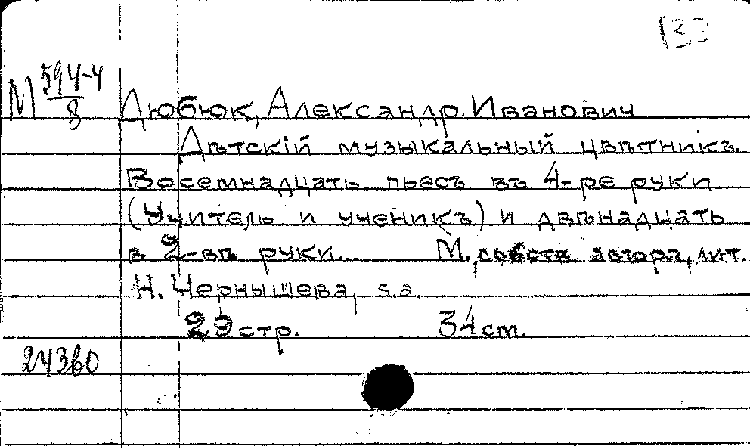 133
М 594-4
8
Дюбюк, Александр Иванович
Дѣтскій музыкальный цвѣтникъ.
Восемнадцать пьесъ въ 4-ре руки
(Учитель и ученикъ) и двѣнадцать
в 2-вѣ руки. М, собств автора, лит.
Н. Чернышева, s.a.
29 стр. 34 cm.
24360